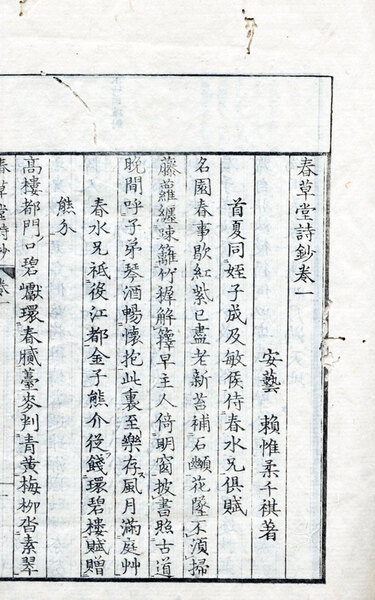 春草堂詩鈔卷一
安藝 賴惟柔千祺著
首夏同姪子成及敏侯侍春水兄俱賦
名園春事歇紅紫已盡老新苔補石罅花墜不須掃
藤蘿纏踈籬竹穉解籜早主人倚明窗披書照古道
晚間呼子弟琴酒暢懷抱此裏至樂存風月滿庭艸
春水兄祗役江都金子熊介餞環碧樓賦贈
熊介
高樓都門口碧巘環春臺麥判青黃梅柳沓素翠
春草堂詩鈔 卷一